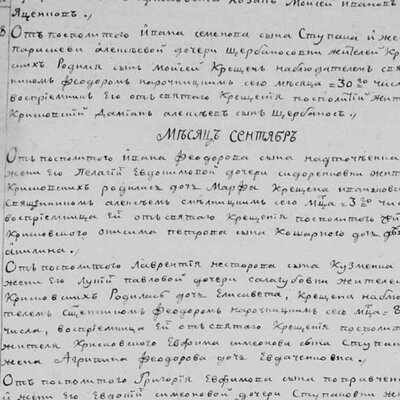 Козак Моисей Ивановъ
Яценковъ ./
8 Отъ посполитого Ивана семенова сына Ступака и же
Параскеви алексѣевой дочери Щербаносовни жителей Кр
сихъ Родился сынъ Моисей Крещенъ наблюдателемъ свя
никомъ Феодоромъ нарочницкимъ сего мѣсяца = 30 го числ
воспріемникъ Его отъ святаго Крещенія посполитій жите
Крисковскій Даміанъ алексѣевъ сынъ Щербаносъ ./
МѢСЯЦЪ СЕНТЯВРЪ
Отъ посполитого Ивана Феодорова сына
жени Его Пелагіи Евдокимовой дочери сидоренковни жит
Крисковскихъ родилась дочь Марфа Крещена
Священникомъ алексѣемъ сего Мца = 3 го чис
воспріемница Ей отъ святаго Крещенія посполитого
Крисковского описима петрова сына Кошарного дочь дѣв
акилина ./
Отъ посполитого Лаврентія нестерова сына Кузменка
жени Его Луціи павловой дочери жителе
Крисковсихъ Родилась дочь Елисавета, Крещена наблю
телемъ священникомъ Феодоромъ нарочницкимъ сего мца = 8
числа, воспріемница Ей отъ святаго Крещенія посполит
жителя Крисковского Евфима симеонова сына Ступак
жена Агрипина Феодорова дочь Евдаченковна ./
Отъ посполитого Григорія Евфимова сына
и жени Его Евдокіи симеоновой дочери Ступаковни жи